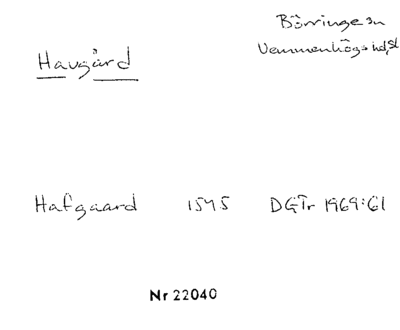 Börringe sn
Vemmenhögs hd, Sk
Havgård
Hafgaard 1545 DGTr 1969:61
Nr 22040